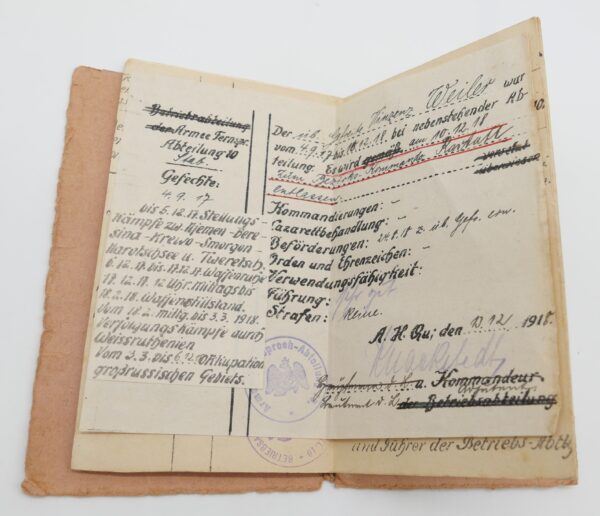 Betriebsabteilung
den Armee Fernspr.
Abteilung 10
Stab.
Gefechte:
4. 9. 17
bis 5. 12. 17 Stellungs-
kämpfe zw. Njemen-Bere-
sina-Krewo-Smorgon-
Narotschsee u. Tweretsch.
6. 12. 17. bis 17. 12. 17 Waffenruhe
17. 12. 17. 12 Uhr. mittags bis
18. 2. 18. Waffenstillstand.
Vom 18. 2. mittg. bis 3. 3. 1918.
Verfolgungskämpfe durch
Weissruthenien
Vom 3. 3. bis Okkupation
großrussischen Gebiets.
Der üb. Gefreite Vinzenz Weiler war
vom 4. 9. 17 bis 10. 12. 18. bei nebenstehender Ab-
teilung. Es wird gemäß am 10. 12. 18
zum Bezirks-Kommando Rastatt versetzt
entlassen überwiesen
Kommandierungen: -
Lazarettbehandlung: -
Beförderungen: z. üb. Gefr.
Orden und Ehrenzeichen: -
Verwendungsfähigkeit:
Führung: Sehr gut
Strafen: Keine.
A. H. Qu; den 12. 1918.
Hauptmann d. L. u. Kommandeur
Leutnant d. L. der Betriebsabteilung
und Führer der Betriebs-Abtlg